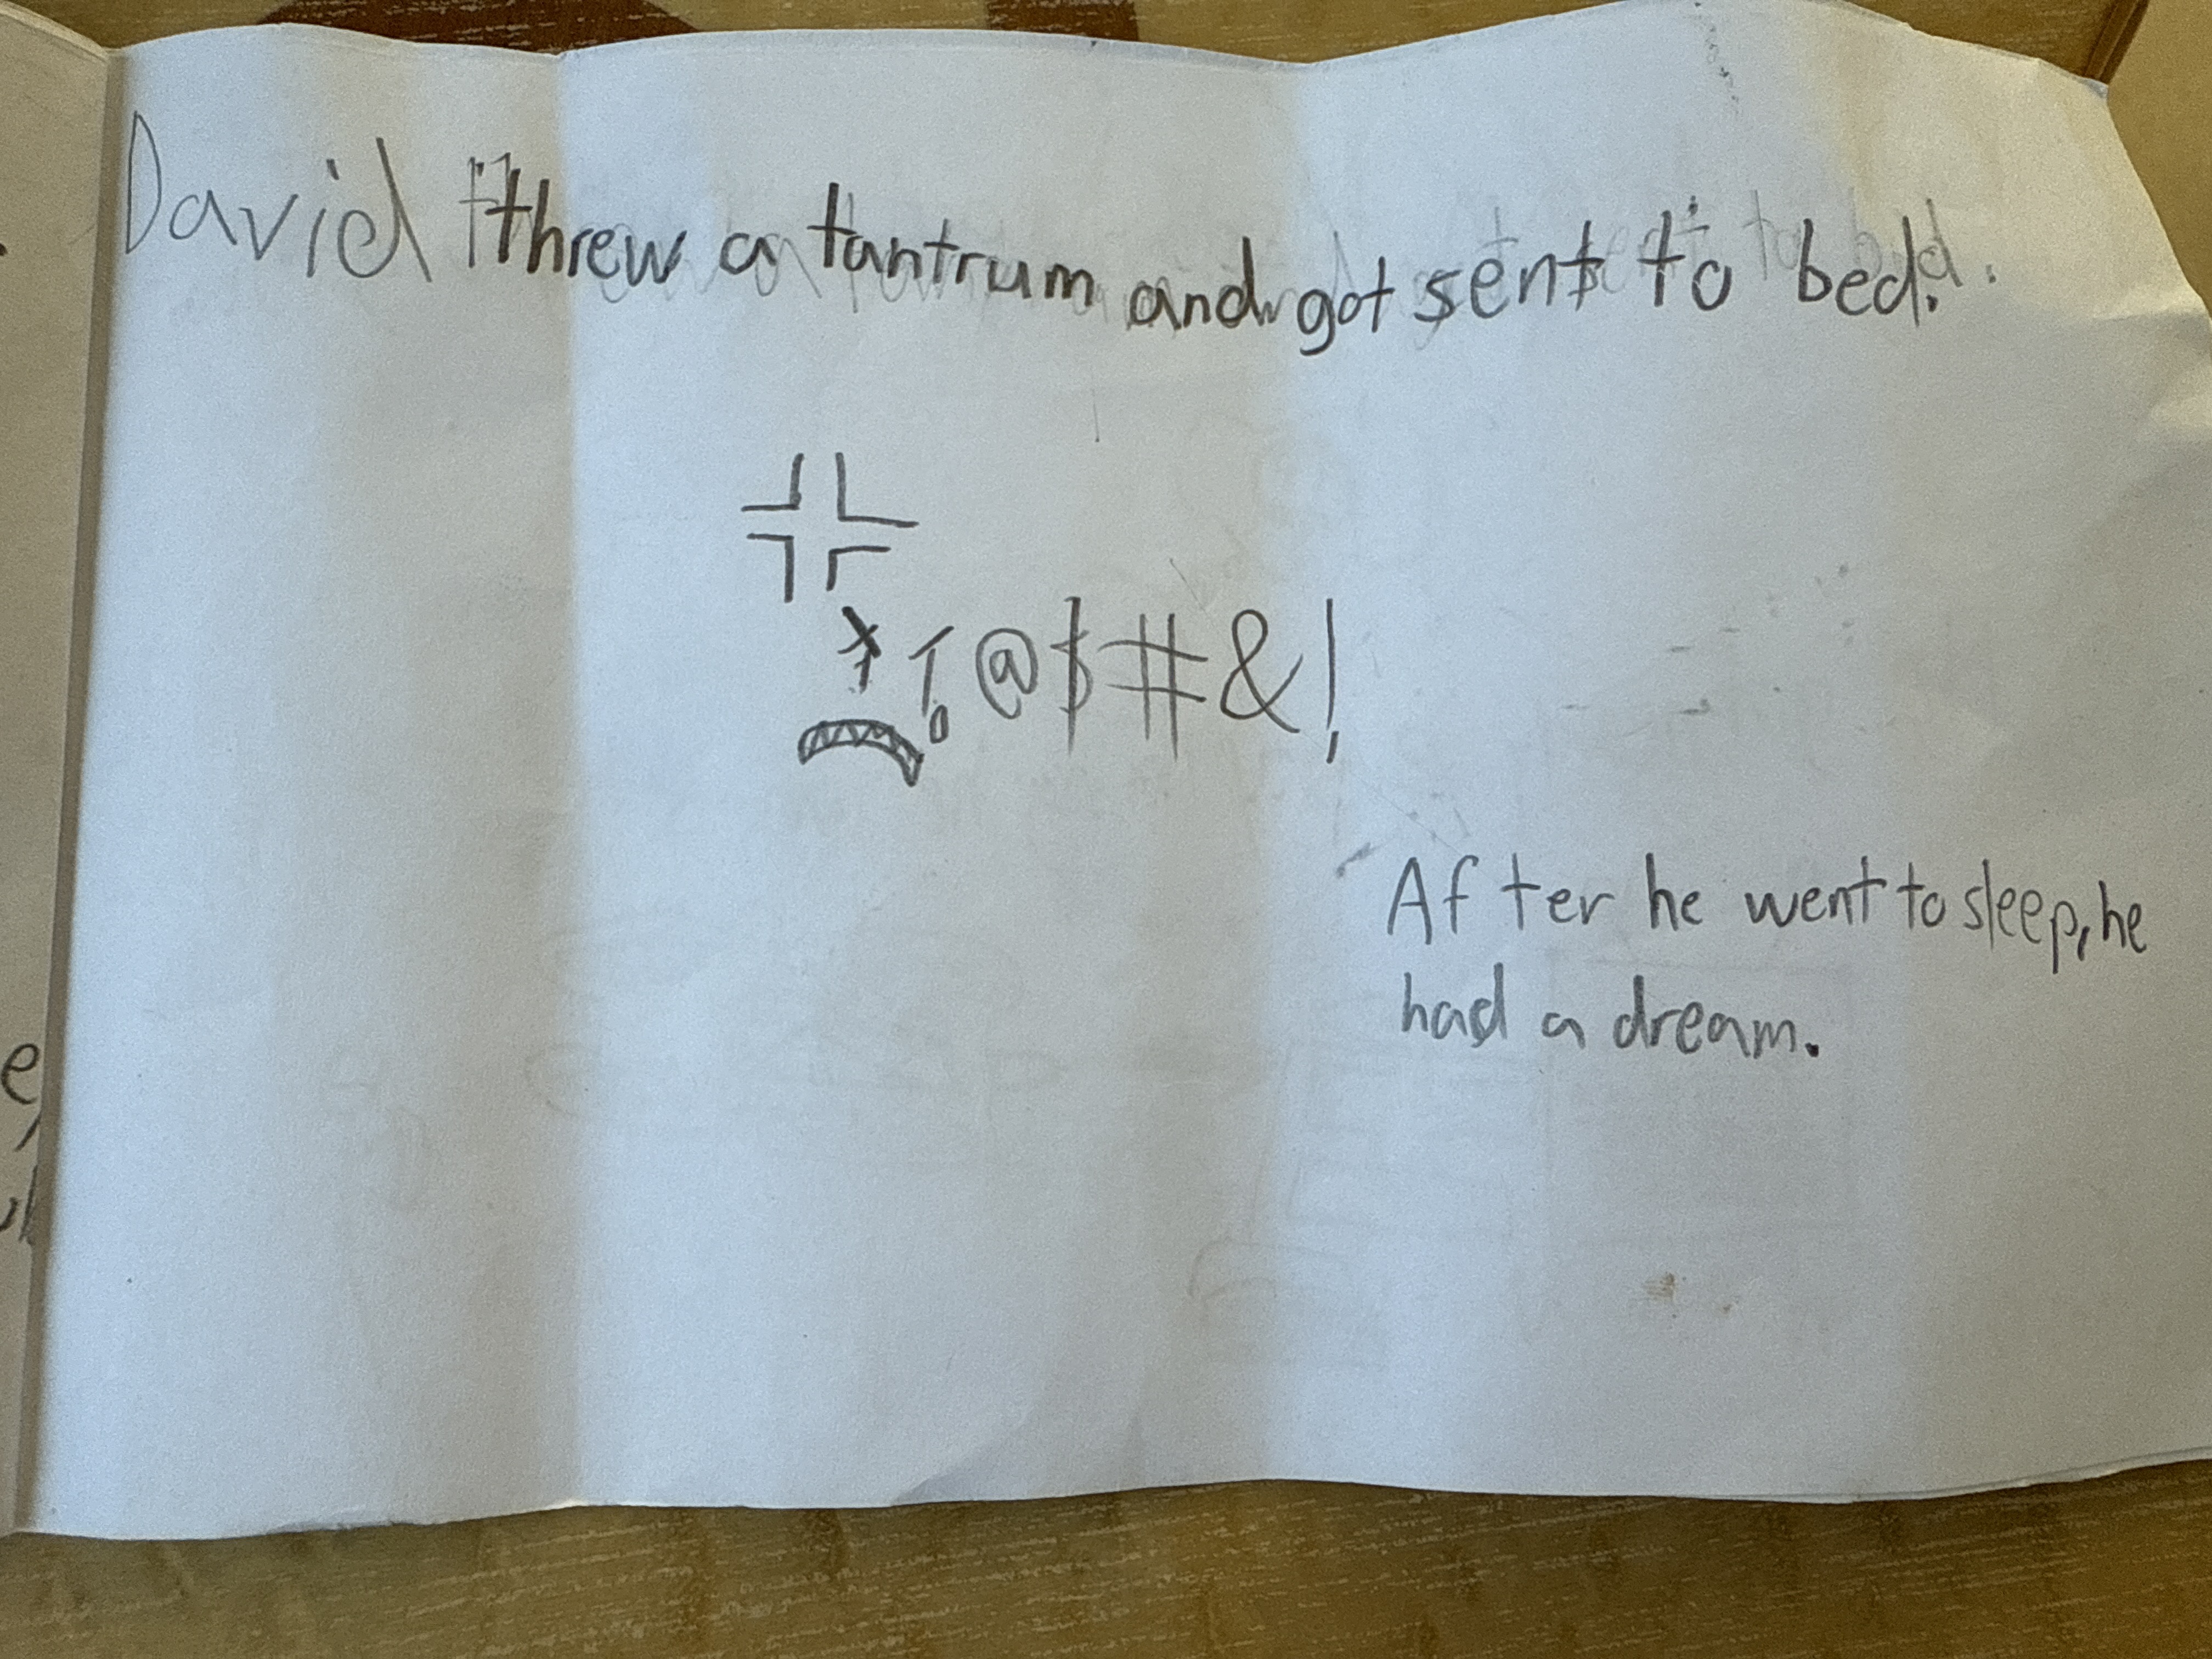 David threw a tantrum and got sent to bed.
*!@$#&!
After he went to sleep, he
had a dream.